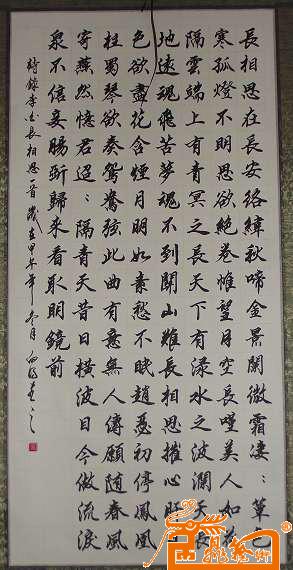 長相思在長安絡緯秋啼金景闌微霜凄〻簟色
寒孤燈不明思欲絕卷帷望月空長嘆美人如花
隔雲端上有青冥之長天下有淥水之波瀾天長
地遠魂飛苦夢魂不到關山難長相思摧心肝日
色欲盡花含煙月明如素愁不眠趙瑟初停鳳凰
柱蜀琴欲奏鴛鴦弦此曲有意無人傳願隨春風
寄燕然憶君迢〻隔青天昔日橫波目今做流淚
泉不信妾腸斷歸來看取明鏡前
詩錄李白長相思一首歲在甲午年冬月